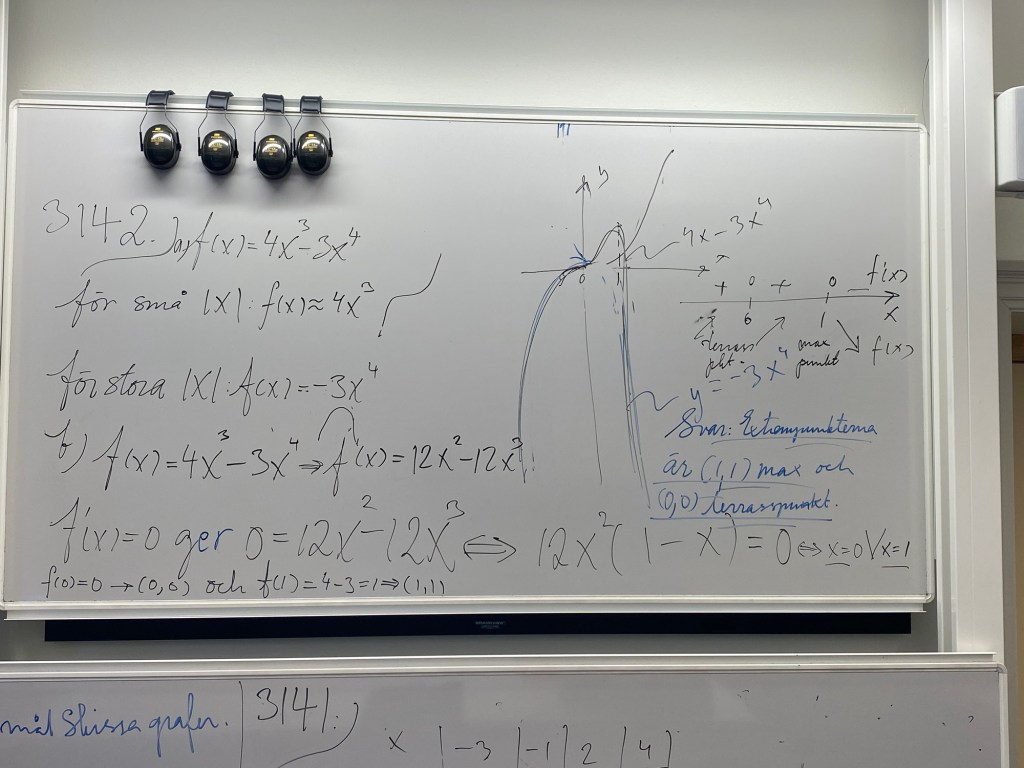 3142. a) f(x) = 4x³-3x⁴
för små |X|: f(x) ≈ 4x³
för stora |X|: f(x) = -3x⁴
b) f(x) = 4x³-3x⁴ ⇒ f'(x) = 12x²-12x³
f'(x) = 0 ger 0 = 12x²-12x³ ⇔ 12x²(1-x) = 0 ⇔ x=0 ∨ x=1
f(0)=0 → (0,0) och f(1) = 4-3 = 1 ⇒ (1,1)
y
4x-3x⁴
x
0
1
+ 0 + 0 - f'(x)
x
1
terrass max f(x)
pkt. punkt
y = -3x⁴
Svar: Extrempunkterna
är (1,1) max och
(0,0) terrasspunkt.
mål Skissa grafer.
3141.
x | -3 | -1 | 2 | 4 |